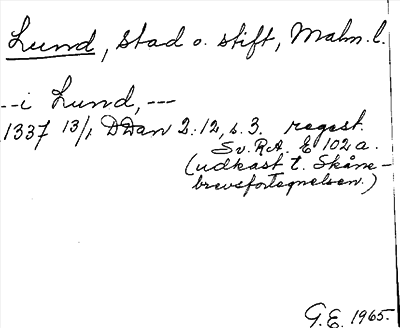 Lund, stad o. stift, Malm. l.
--i Lund, ---
1337 13/1 DDan 2:12, s. 3. regest.
Sv. R.A. E 102 a.
(udkast t. Skåne-
brevsfortegnelsen.)
G.E. 1965.